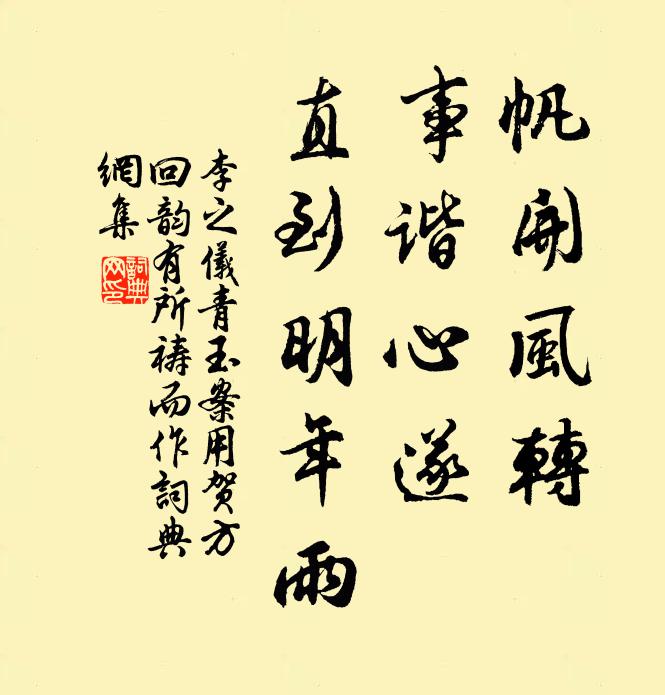 帆開風轉
事谐心遂
直到明年雨
李之儀青玉案用贺方
回韵有所祷而作詞典
網集
詞典網印